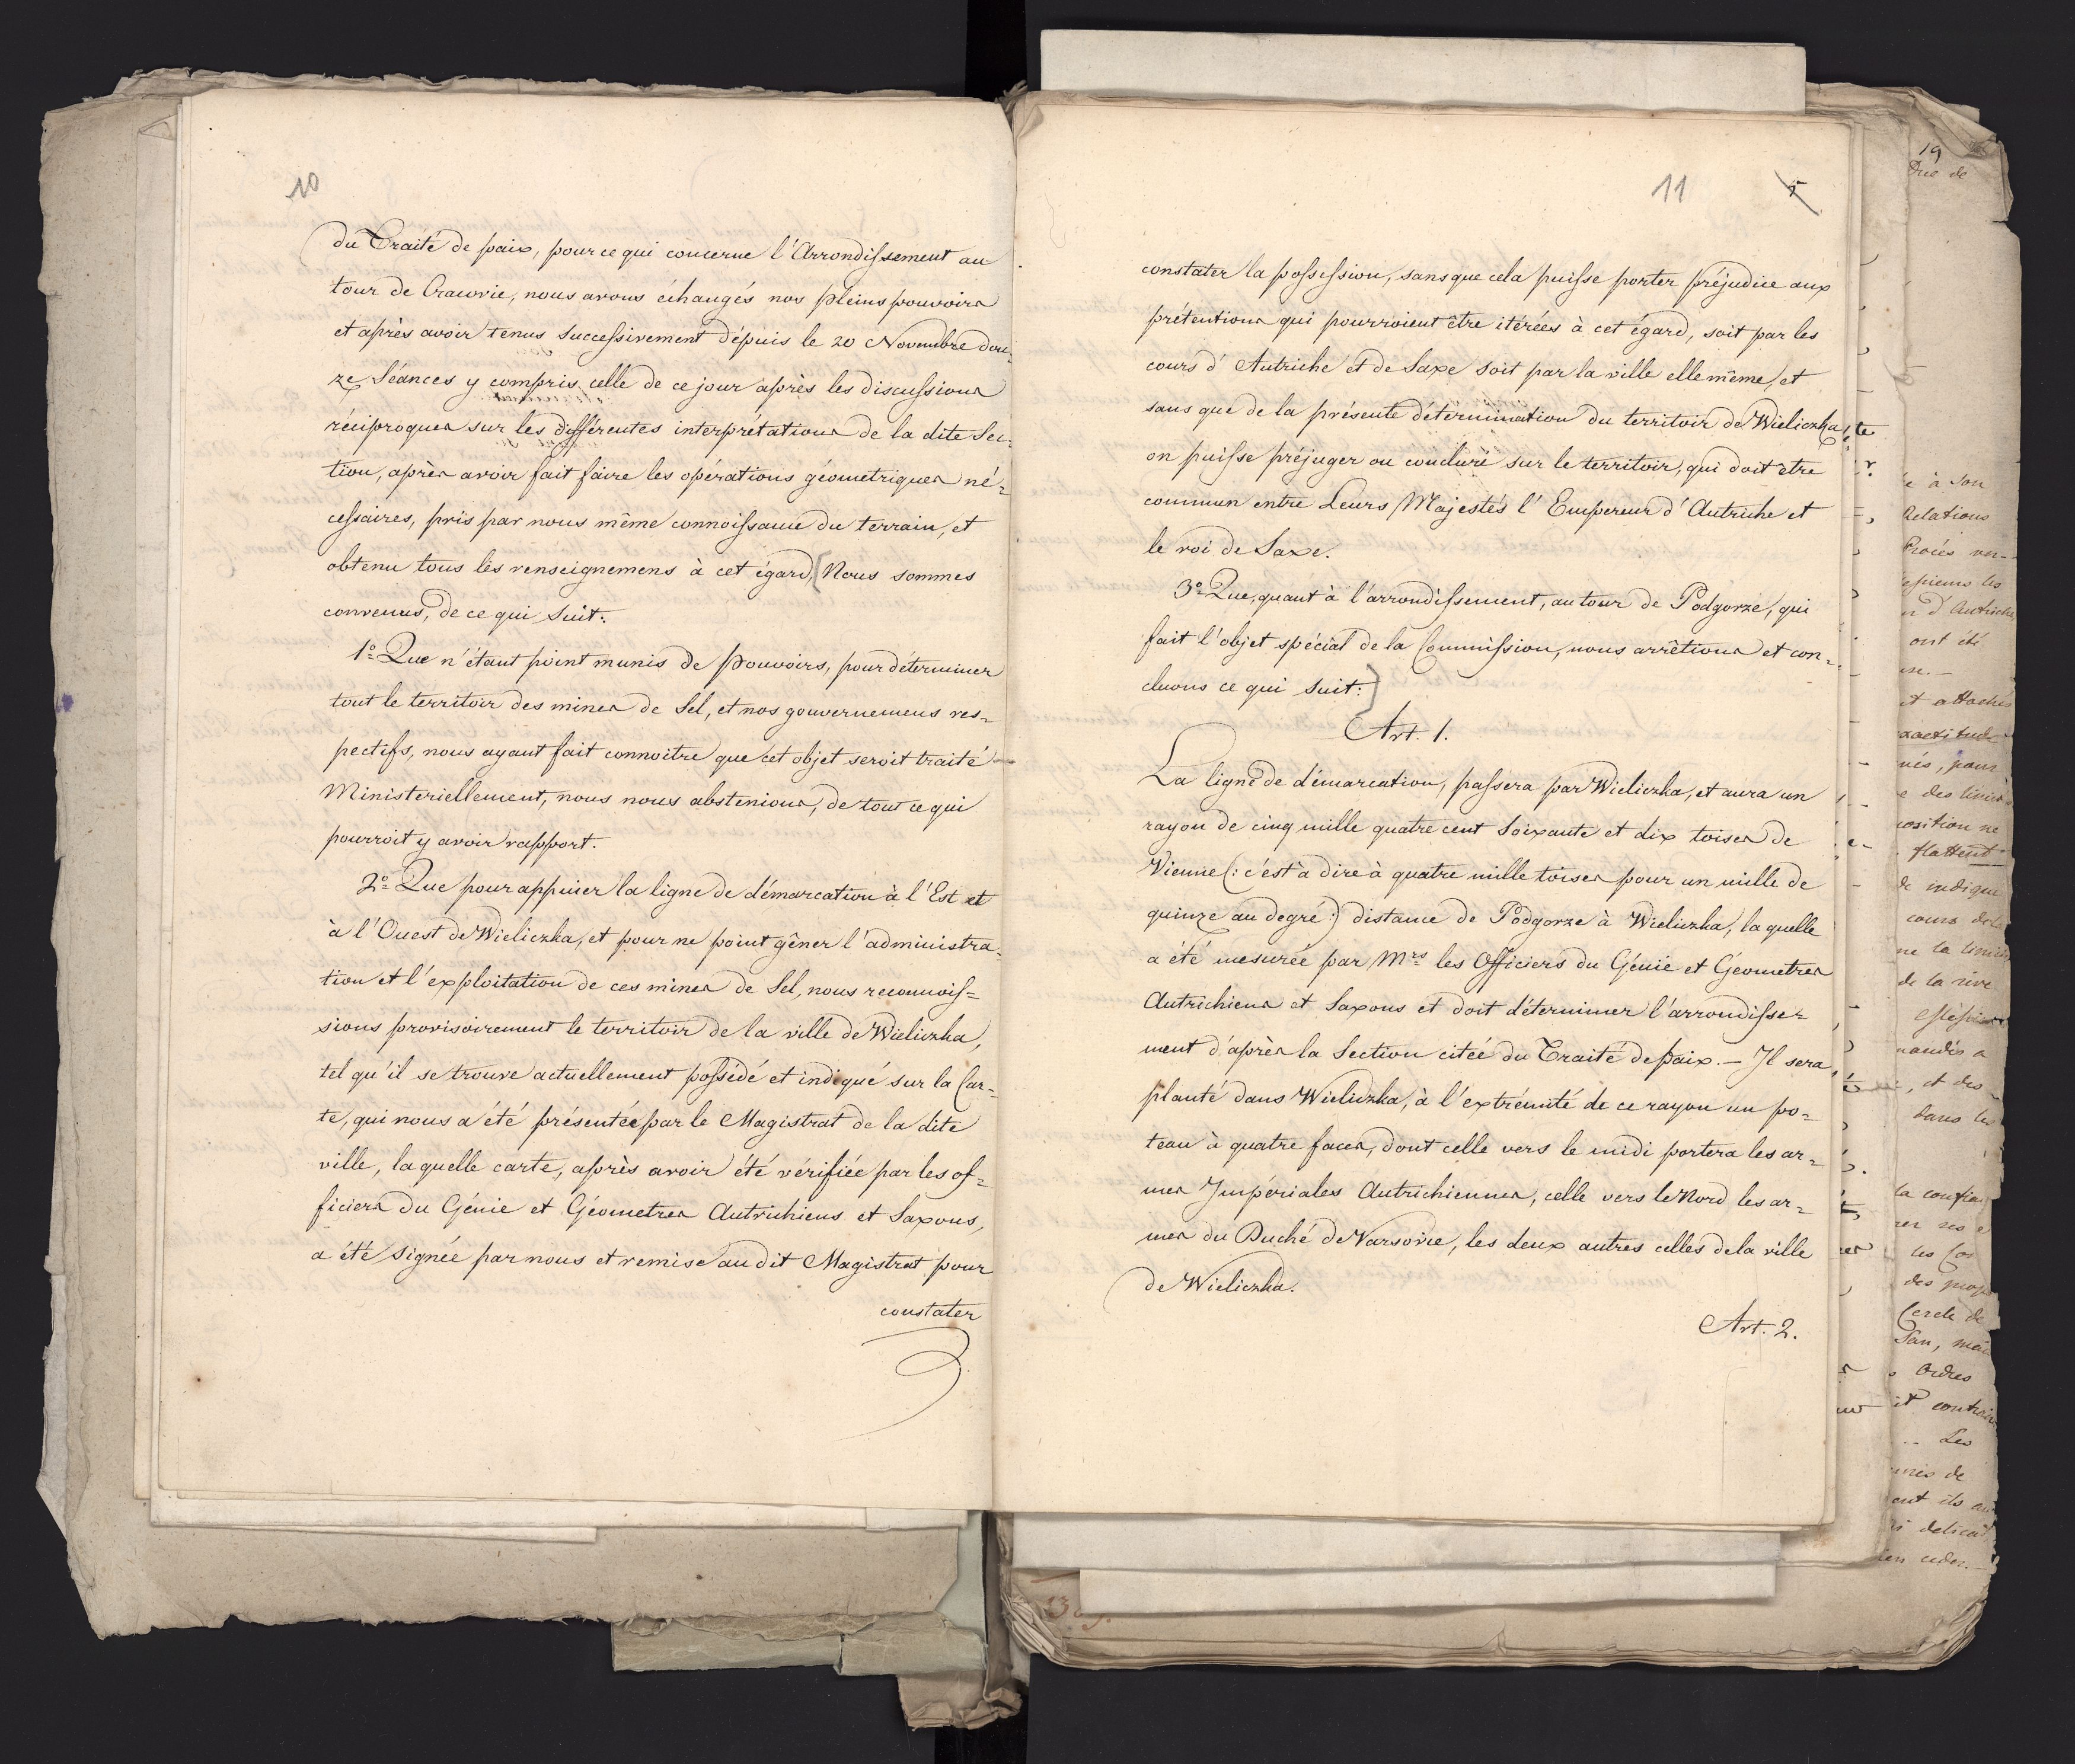 10
du Traité de paix, pour ce qui concerne l'Arrondissement au
tour de Cracovie, nous avons échangés nos pleins pouvoirs
et après avoir tenus successivement dépuis le 20 Novembre dou-
ze Séances y compris celle de ce jour après les discussions
réciproques sur les différentes interprétations de la dite Sec-
tion, après avoir fait faire les opérations géometriques né-
cessaires, pris par nous même connoissance du terrain, et
obtenu tous les renseignemens à cet égard, [Nous sommes
convenus, de ce qui Suit:
1º Que n'étant point munis de pouvoirs, pour déterminer
tout le territoir des mines de Sel, et nos gouvernemens res-
pectifs, nous ayant fait connoitre que cet objet seroit traité
Ministeriellement, nous nous abstenions, de tout ce qui
pourroit y avoir rapport.
2º Que pour appuier la ligne de démarcation à l'Est et
à l'Ouest de Wieliczka, et pour ne point gêner l'administra-
tion et l'exploitation de ces mines de Sel, nous reconnois-
sions provisoirement le territoir de la ville de Wieliczka,
tel qu'il se trouve actuellement possédé et indiqué sur la Car-
te, qui nous a été présentée par le Magistrat de la dite
ville, laquelle carte, après avoir été vérifiée par les of-
ficiers du Génie et Géometres Autrichiens et Saxons,
a été signée par nous et remise au dit Magistrat pour
constater
11
5
constater la possession, sans que cela puisse porter préjudice aux
prétentions qui pourroient être itérées à cet égard, soit par les
cours d'Autriche et de Saxe soit par la ville elle même, et
sans que de la présente détermination du territoir de Wieliczka,
on puisse préjuger ou conclure sur le territoir, qui doit être
commun entre Leurs Majestés l'Empereur d'Autriche et
le roi de Saxe.
3º Que, quant à l'arrondissement, au tour de Podgorze, qui
fait l'objet spécial de la Commission, nous arrêtions et con-
cluons ce qui suit:]
Art. 1.
La ligne de démarcation, passera par Wieliczka, et aura un
rayon de cinq mille quatre cent Soixante et dix toises de
Vienne (: c'est à dire à quatre mille toises pour un mille de
quinze au degré:) distance de Podgorze à Wieliczka, laquelle
a été mesurée par Mrs les Officiers du Génie et Géometres
Autrichiens et Saxons et doit déterminer l'arrondisse-
ment d'après la Section citée du Traité de paix. — Il sera
planté dans Wieliczka, à l'extrémité de ce rayon un po-
teau à quatre faces, dont celle vers le midi portera les ar-
mes Impériales Autrichiennes, celle vers le Nord les ar-
mes du Duché de Varsovie, les deux autres celles de la ville
de Wieliczka.
Art. 2.
19
à son
Relations
ont été
et attachés
pour
position ne
flattent
de indique
cours
de la rive
, et des
dans les
Cercle de
San,
Ordres
Les